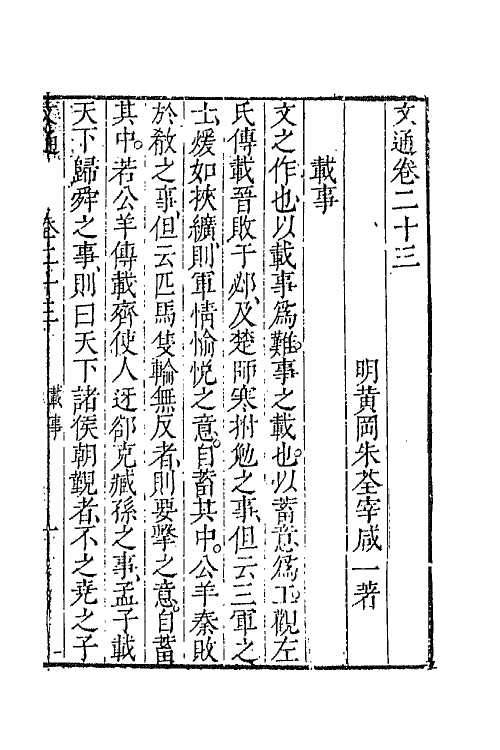 文通卷二十三
明黃岡朱荃宰咸一著
載事
文之作也以載事爲難事之載也以蓄意爲工觀左
氏傳載晉敗于邲及楚師寒拊勉之事但云三軍之
士煖如挾纊則軍情愉悅之意自蓄其中公羊秦敗
於殽之事但云匹馬隻輪無反者則要擊之意自蓄
其中若公羊傳載齊使人迓郤克臧孫之事孟子載
天下歸舜之事則曰天下諸侯朝覲者不之堯之子
文通 卷二十三 載事 一